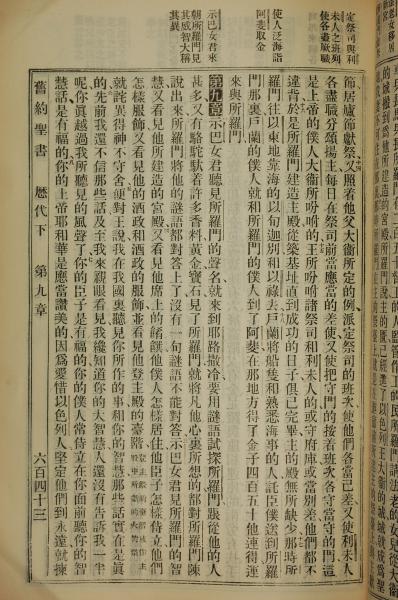 定祭司與利
未人之班列
使各盡厥職
使人泛海詣
阿斐取金
示巴女君來
朝所羅門見
其威智大稱
其異
節居廬節獻祭又照着他父大衞所定的例派定祭司的班次使他們各當己差又使利未人
各盡職分頌揚主每日在祭司前當應當的差使又使把守門的接着班次各守當守的門這
是上帝的僕人大衞所吩咐的王所吩咐諸祭司和利未人的或守府庫或當別差他們都不
違背於是所羅門建造主殿從築基址直到成功的日子俱已完畢主的殿無所缺少那時所
羅門往以東地靠海的以旬迦別和以祿去戶蘭將船隻和熟悉海事的人託臣僕送到所羅
門那裏戶蘭的僕人就和所羅門的僕人到了阿斐在那地方得了金子四百五十他連得運
來與所羅門
第九章示巴女君聽見所羅門的聲名就來到耶路撒冷要用謎語試探所羅門跟從他的人
甚多又有駱駝馱着許多香料黃金寶石見了所羅門就將凡他心裏所想的都對所羅門陳
說出來所羅門將他的謎語都對答上了沒有一句謎語不能對答示巴女君見所羅門的智
慧又看見他所建造的宮殿又看見他席上的餚饌他僕人怎樣居住他臣子怎樣侍立他們
怎樣服飾又看見他的酒政和酒政的服飾並看見他登主殿的臺階
就詫異得神不守舍便對王說我在我國裏聽見你所作的事和你的智慧那些話實在是眞
的先前我還不信那些話及至我來親眼看見我纔知道你的大智慧人還沒有告訴我一半
呢你眞越過我所聽見的風聲了你的臣子是有福的你的僕人常侍立在你面前聽你的智
慧話是有福的你的上帝耶和華是應當讚美的因爲愛惜以色列人堅定他們到永遠就揀
舊約聖書 歷代下 第九章 六百四十三